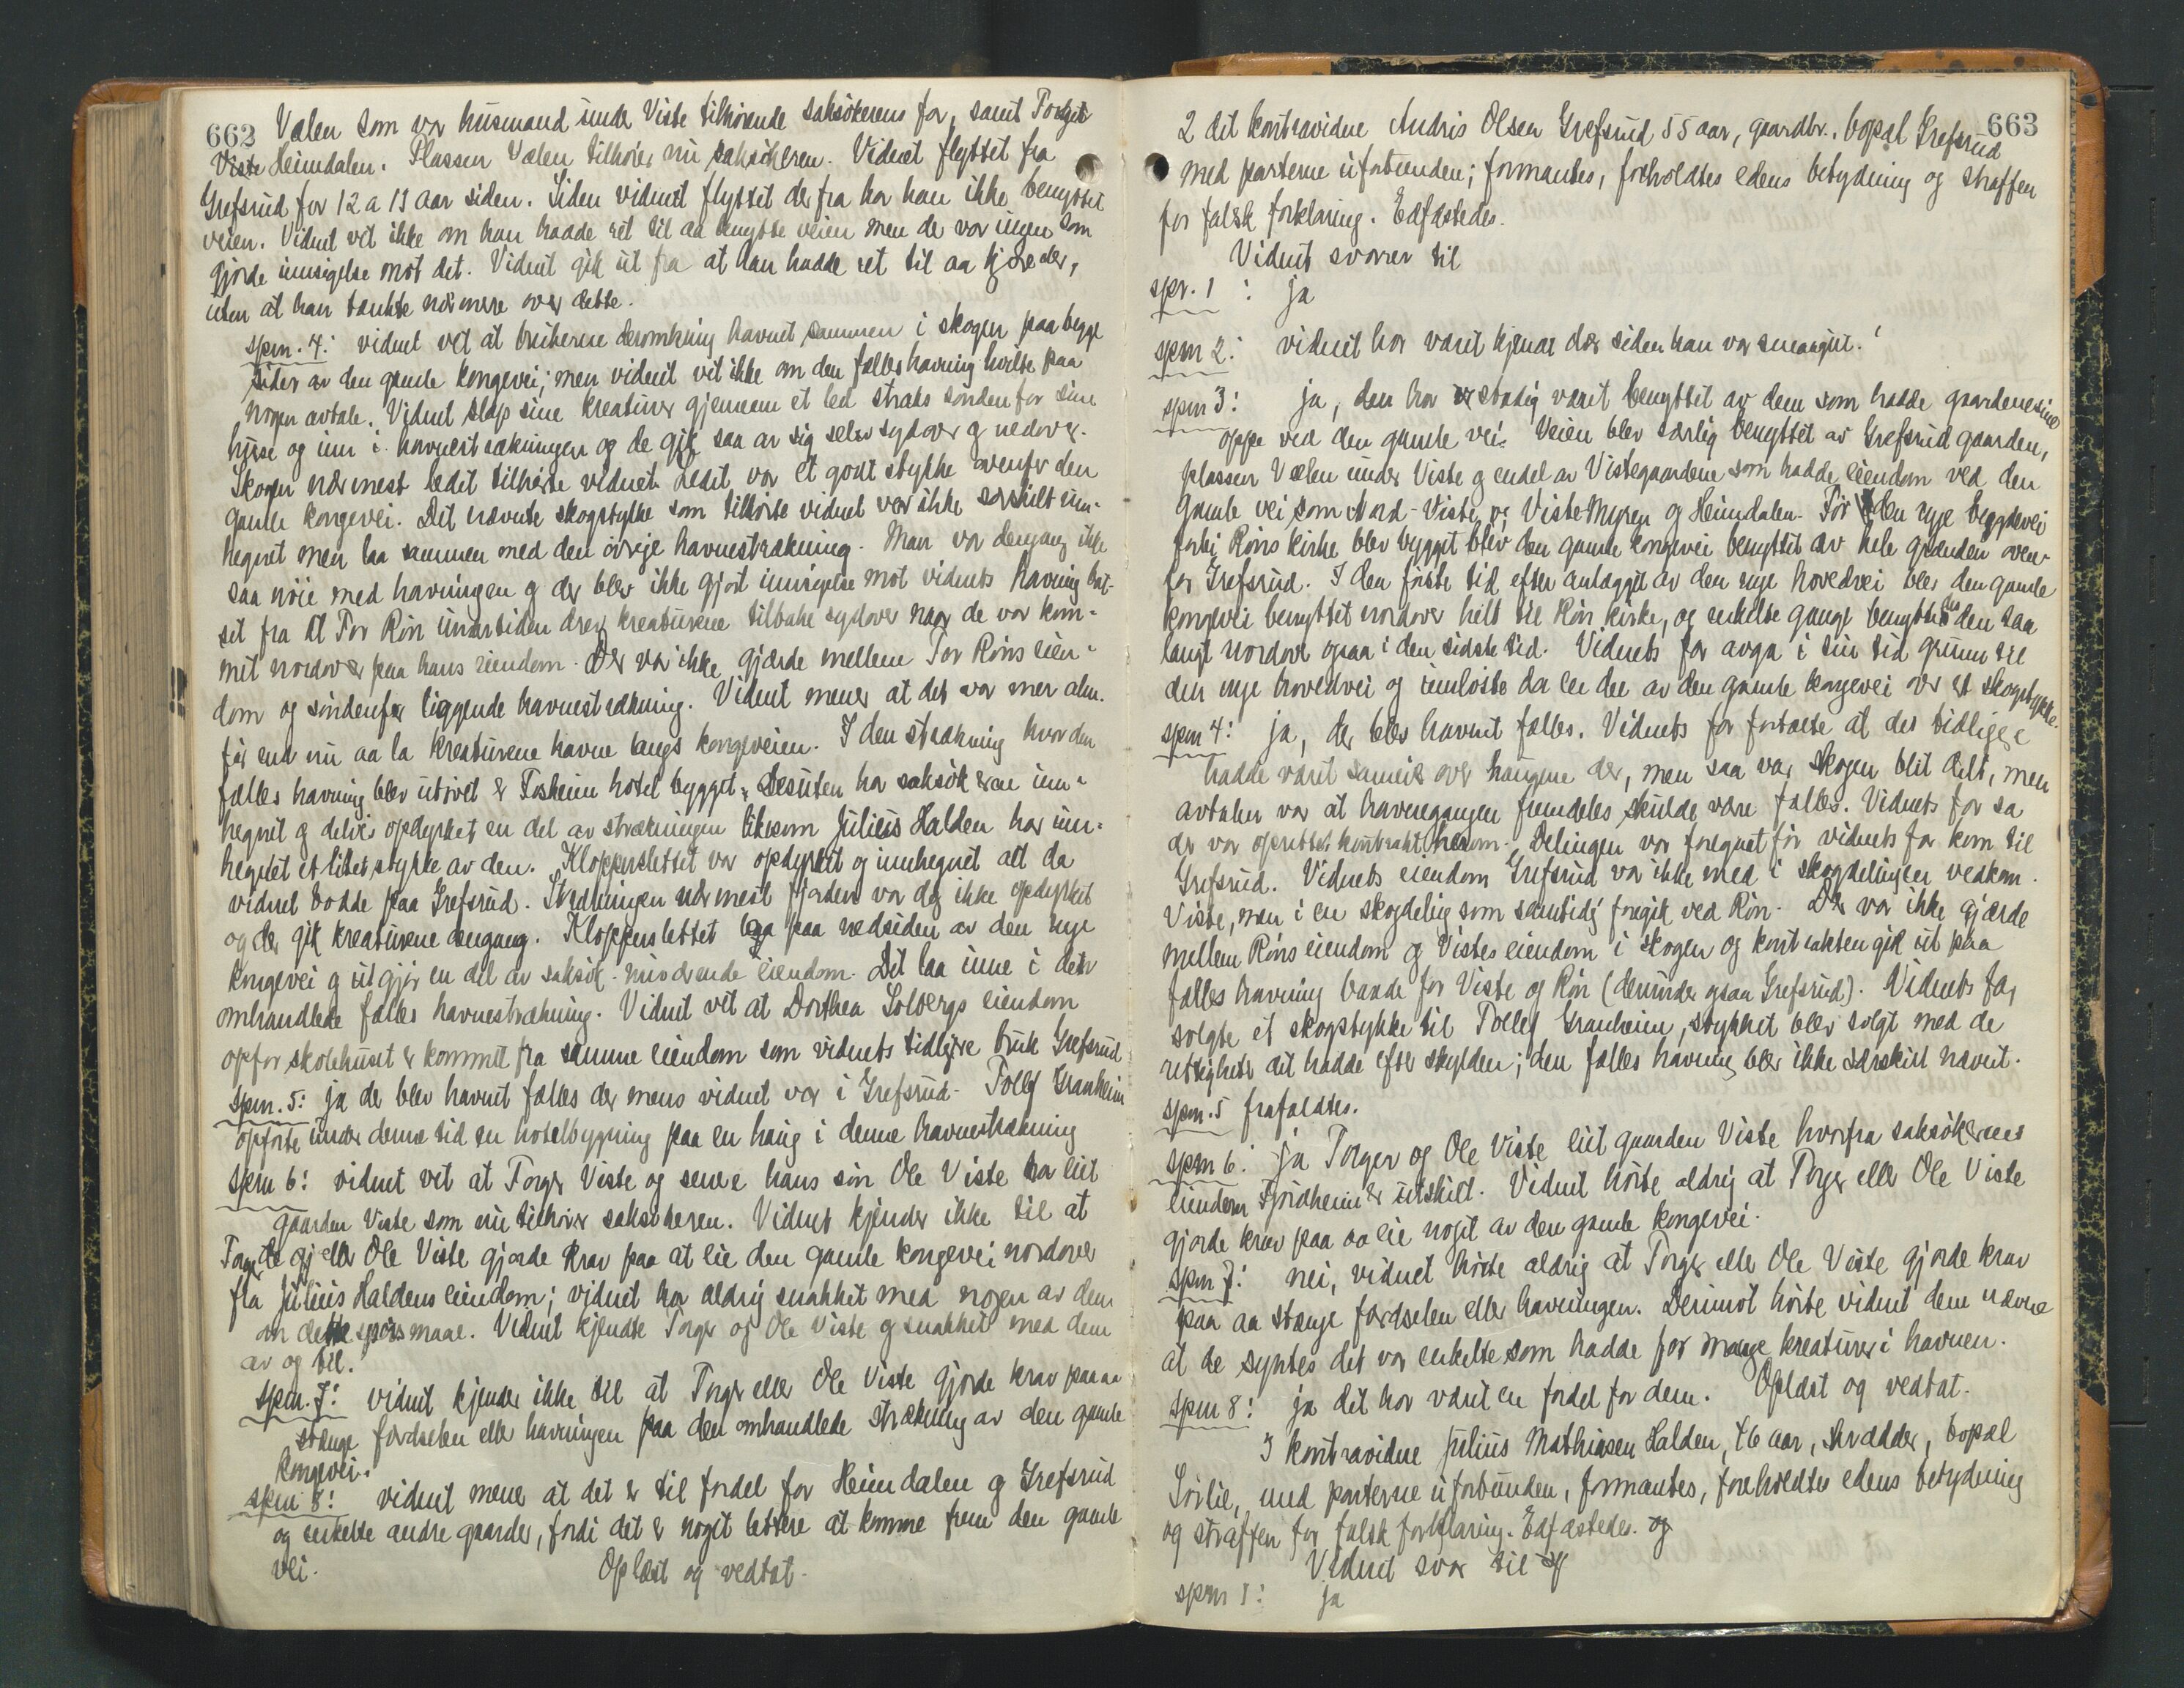 662
Vælen som var husmand under Viste tilhørende saksökerens far, samt Torger
Viste Heimdalen. Plassen Vælen tilhører nu saksökeren. Vidnet flyttet fra
Grefsrud for 12 a 13 aar siden. Siden vidnet flyttet derfra har han ikke benyttet
veien. Vidnet vet ikke om han hadde ret til aa benytte veien men de var ingen som
gjorde innsigelse mot det. Vidnet gik ut fra at han hadde ret til aa kjøre der,
uten at han tænkte nærmere over dette.
spm. 4: vidnet vet at brukerne deromkring havnet sammen i skogen paa begge
sider av den gamle kongevei; men vidnet vet ikke om den fælles havning hvilte paa
nogen avtale. Vidnet slap sine kreaturer gjennem et led straks søndenfor sine
huse og inn i havnestrækningen og de gik saa av sig selv sydover og nedover.
Skogen nærmest ledet tilhørte vidnet. Ledet var et godt stykke ovenfor den
gamle kongevei. Det nævnte skogstykke som tilhørte vidnet var ikke særskilt inn-
hegnet men laa sammen med den øvrige havnestrækning. Man var dengang ikke
saa nøie med havningen og der blev ikke gjort innsigelse mot vidnets havning bort-
set fra at Tor Røn undertiden drev kreaturene tilbake sydover naar de var kom-
met nordover paa hans eiendom. Der var ikke gjærde mellem Tor Røns eien-
dom og søndenfor liggende havnestrækning. Vidnet mener at det var mer alm.
før end nu aa la kreaturene havne langs kongeveien. I den strækning hvor den
fælles havning blev utøvet er Fosheim hotel bygget. Desuten har saksökeren inn-
hegnet og delvis opdyrket en del av strækningen likesom Julius Halden har inn-
hegnet et litet stykke av den. Klopperslettet var opdyrket og innhegnet alt da
vidnet bodde paa Grefsrud. Strækningen nærmest fjorden var dog ikke opdyrket
og der gik kreaturene dengang. Kloppersletttet laa paa nedsiden av den nye
kongevei og utgjør en del av saksøk. nuværende eiendom. Det laa inne i den
omhandlede fælles havnestrækning. Vidnet vet at Dorthea Solbergs eiendom
opfor skolehuset er kommet fra samme eiendom som vidnets tidligere bruk Grefsrud
Spm. 5: ja de blev havnet fælles der mens vidnet var i Grefsrud. Tollef Granheim
opførte under denne tid en hotelbygning paa en haug i denne havnestrækning
Spm 6: vidnet vet at Torger Viste og senere hans søn Ole Viste har eiet
gaarden Viste som nu tilhører saksökeren. Vidnet kjender ikke til at
Torger eller Ole Viste gjorde krav paa at eie den gamle kongevei nordover
fra Julius Haldens eiendom; vidnet har aldrig snakket med nogen av dem
om dette spørsmaal. Vidnet kjendte Torger og Ole Viste og snakket med dem
av og til.
Spm. 7: vidnet kjender ikke til at Torger eller Ole Viste gjorde krav paa aa
stænge færdselen eller havningen paa den omhandlede strækning av den gamle
kongevei.
spm 8: vidnet mener at det er til fordel for Heimdalen og Grefsrud
og enkelte andre gaarder, fordi det er noget lettere at komme frem den gamle
vei. Oplæst og vedtat.
663
2 det kontravidne Andris Olsen Grefsrud 55 aar, gaardbr., bopæl Grefsrud
med parterne uforbunden; formantes, foreholdtes edens betydning og straffen
for falsk forklaring. Edfæstedes.
Vidnet svarer til
spr. 1: ja
spm 2: vidnet har været kjent der siden han var smaagut.
spm 3: ja, den har stadig været benyttet av dem som hadde gaardene sine
oppe ved den gamle vei. Veien blev særlig benyttet av Grefsrud gaarden,
plassen Vælen under Viste og endel av Vistegaardene som hadde eiendom ved den
gamle vei som Nord-Viste, Viste Myren og Heimdalen. Før den nye bygdevei
forbi Røns kirke blev bygget blev den gamle kongevei benyttet av hele grænden oven-
for Grefsrud. I den første tid efter anlægget av den nye hovedvei blev den gamle
kongevei benyttet nordover helt til Røn kirke, og enkelte gange benyttedes den saa
langt nordover ogsaa i den sidste tid. Vidnets far avga i sin tid grunn til
den nye hovedvei og innløste da en del av den gamle kongevei over et skogstykke.
spm 4: ja, der blev havnet fælles. Vidnets far fortalte at det tidligere
hadde været sameie over haugene der, men saa var skogen blit delt, men
avtalen var at havnegangen fremdeles skulde være fælles. Vidnets far sa
der var oprettet kontrakt herom. Delingen var foregaaet før vidnets far kom til
Grefsrud. Vidnets eiendom Grefsrud var ikke med i skogdelingen vedkom.
Viste, men i en skogdeling som samtidig foregik ved Røn. Der var ikke gjærde
mellem Røns eiendom og Vistes eiendom i skogen og kontrakten gik ut paa
fælles havning baade for Viste og Røn (derunder ogsaa Grefsrud). Vidnets far
solgte et skogstykke til Tollef Granheim, stykket blev solgt med de
rettigheter det hadde efter skylden; den fælles havning blev ikke særskilt nævnt.
spm. 5 frafaldtes.
spm 6: ja Torger og Ole Viste eiet gaarden Viste hvorfra saksökerens
eiendom Fjordheim er utskilt. Vidnet hørte aldrig at Torger eller Ole Viste
gjorde krav paa aa eie noget av den gamle kongevei.
spm 7: nei, vidnet hørte aldrig at Torger eller Ole Viste gjorde krav
paa aa stænge færdselen eller havningen. Derimot hørte vidnet dem nævne
at de syntes det var enkelte som hadde for mange kreaturer i havnen.
spm 8: ja det har været en fordel for dem. Oplæst og vedtat.
3 kontravidne Julius Mathiasen Halden, 46 aar, skrædder, bopæl
Sørlie, med parterne uforbunden, formantes, foreholdtes edens betydning
og straffen for falsk forklaring. Edfæstedes. og
Vidnet svar til
spm 1: ja